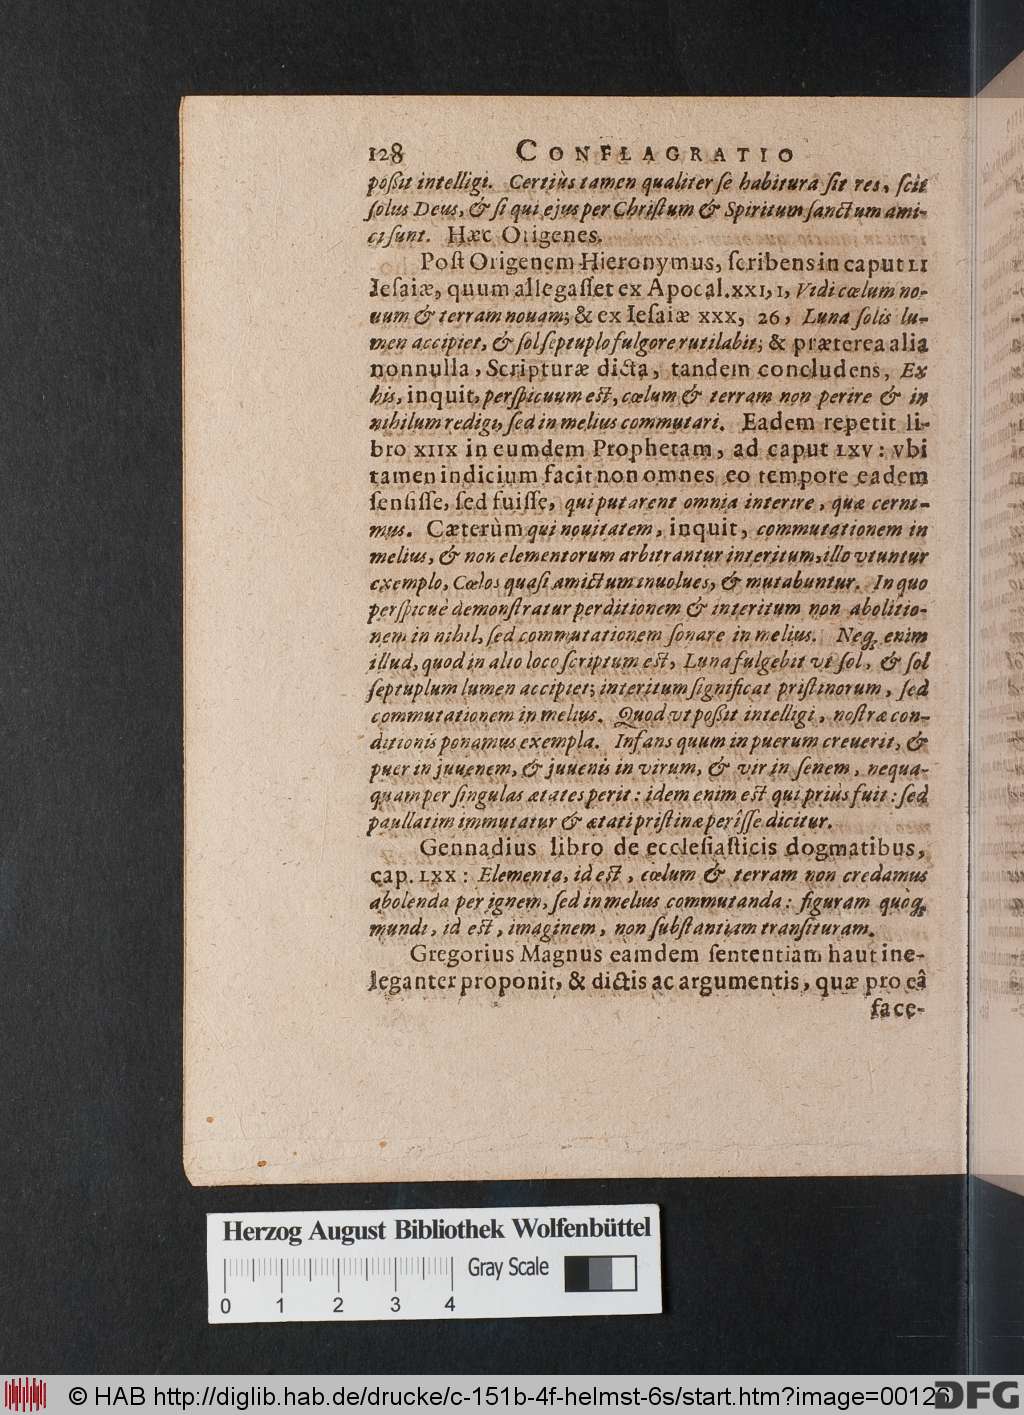 128 CONFLAGRATIO
poßit intelligi. Certiùs tamen qualiter ſe habitura ſit res, ſcit
ſolus Deus, & ſi qui ejus per Chriſtum & Spiritum ſanctum ami-
ci ſunt. Hæc Origenes.
Poſt Origenem Hieronymus, ſcribens in caput LI
Ieſaiæ, quum allegaſſet ex Apocal. XXI, 1, Vidi cœlum no-
uum & terram nouam; & ex Ieſaiæ XXX, 26, Luna ſolis lu-
men accipiet, & ſol ſeptuplo fulgore rutilabit; & præterea alia
nonnulla, Scripturæ dicta, tandem concludens, Ex
his, inquit, perſpicuum eſt, cœlum & terram non perire & in
nihilum redigi, ſed in melius commutari. Eadem repetit li-
bro XIIX in eumdem Prophetam, ad caput LXV: vbi
tamen indicium facit non omnes eo tempore eadem
ſenſiſſe, ſed fuiſſe, qui putarent omnia interire, quæ cerni-
mus. Cæterùm qui nouitatem, inquit, commutationem in
melius, & non elementorum arbitrantur interitum, illo vtuntur
exemplo, Cœlos quaſi amictum inuolues, & mutabuntur. In quo
perſpicuè demonſtratur perditionem & interitum non abolitio-
nem in nihil, ſed commutationem ſonare in melius. Neq; enim
illud, quod in alio loco ſcriptum eſt, Luna fulgebit vt ſol, & ſol
ſeptuplum lumen accipiet; interitum ſignificat priſtinorum, ſed
commutationem in melius. Quod vt poßit intelligi, noſtræ con-
ditionis ponamus exempla. Infans quum in puerum creuerit, &
puer in juuenem, & juuenis in virum, & vir in ſenem, nequa-
quam per ſingulas ætates perit: idem enim eſt qui priùs fuit: ſed
paullatim immutatur & ætati priſtinæ periſſe dicitur.
Gennadius libro de eccleſiaſticis dogmatibus,
cap. LXX: Elementa, id eſt, cœlum & terram non credamus
abolenda per ignem, ſed in melius commutanda: figuram quòq;
mundi, id eſt, imaginem, non ſubſtantiam tranſituram.
Gregorius Magnus eamdem ſententiam haut ine-
leganter proponit, & dictis ac argumentis, quæ pro eâ
face-
Herzog August Bibliothek Wolfenbüttel
Gray Scale
0 1 2 3 4
© HAB http://diglib.hab.de/drucke/c-151b-4f-helmst-6s/start.htm?image=00126
DFG